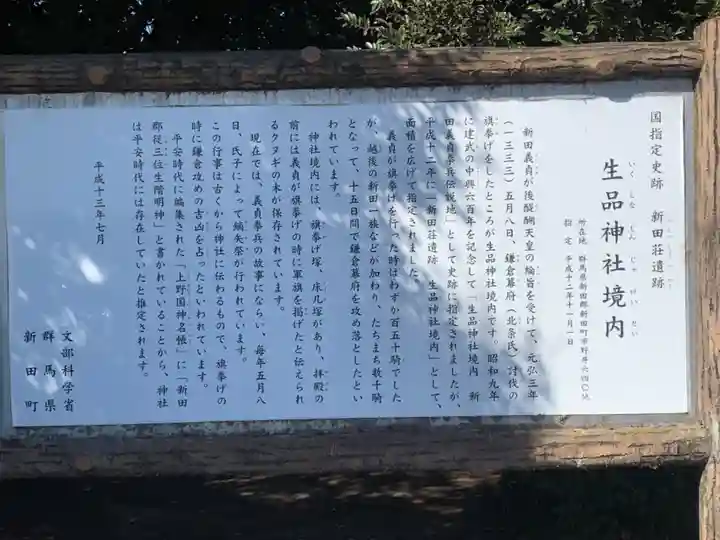 国指定史跡　新田荘遺跡
生品神社境内
いくしなじんじゃけいだい
所在地　群馬県新田郡新田町市野井六四〇他
指定　平成十二年十一月一日
新田義貞が後醍醐天皇の綸旨を受けて、元弘三年
（一三三三）五月八日、鎌倉幕府（北条氏）討伐の
旗挙げをしたところが生品神社境内です。昭和九年
に建武の中興六百年を記念して「生品神社境内　新
田義貞挙兵伝説地」として史跡に指定されましたが、
平成十二年に「新田荘遺跡　生品神社境内」として、
面積を広げて指定されました。
義貞が旗挙げを行った時はわずか百五十騎でした
が、越後の新田一族などが加わり、たちまち数千騎
となって、十五日間で鎌倉幕府を攻め落としたとい
われています。
神社境内には、旗挙げ塚、床几塚があり、拝殿の
前には義貞が旗挙げの時に軍旗を掲げたと伝えられ
るクヌギの木が保存されています。
現在では、義貞挙兵の故事にならい、毎年五月八
日、氏子によって鏑矢祭が行われています。
この行事は古くから神社に伝わるもので、旗挙げの
時に鎌倉攻めの吉凶を占ったといわれています。
平安時代に編集された「上野国神名帳」に「新田
郡従三位生階明神」と書かれていることから、神社
は平安時代には存在していたと推定されます。
平成十三年七月
文部科学省
群馬県
新田町